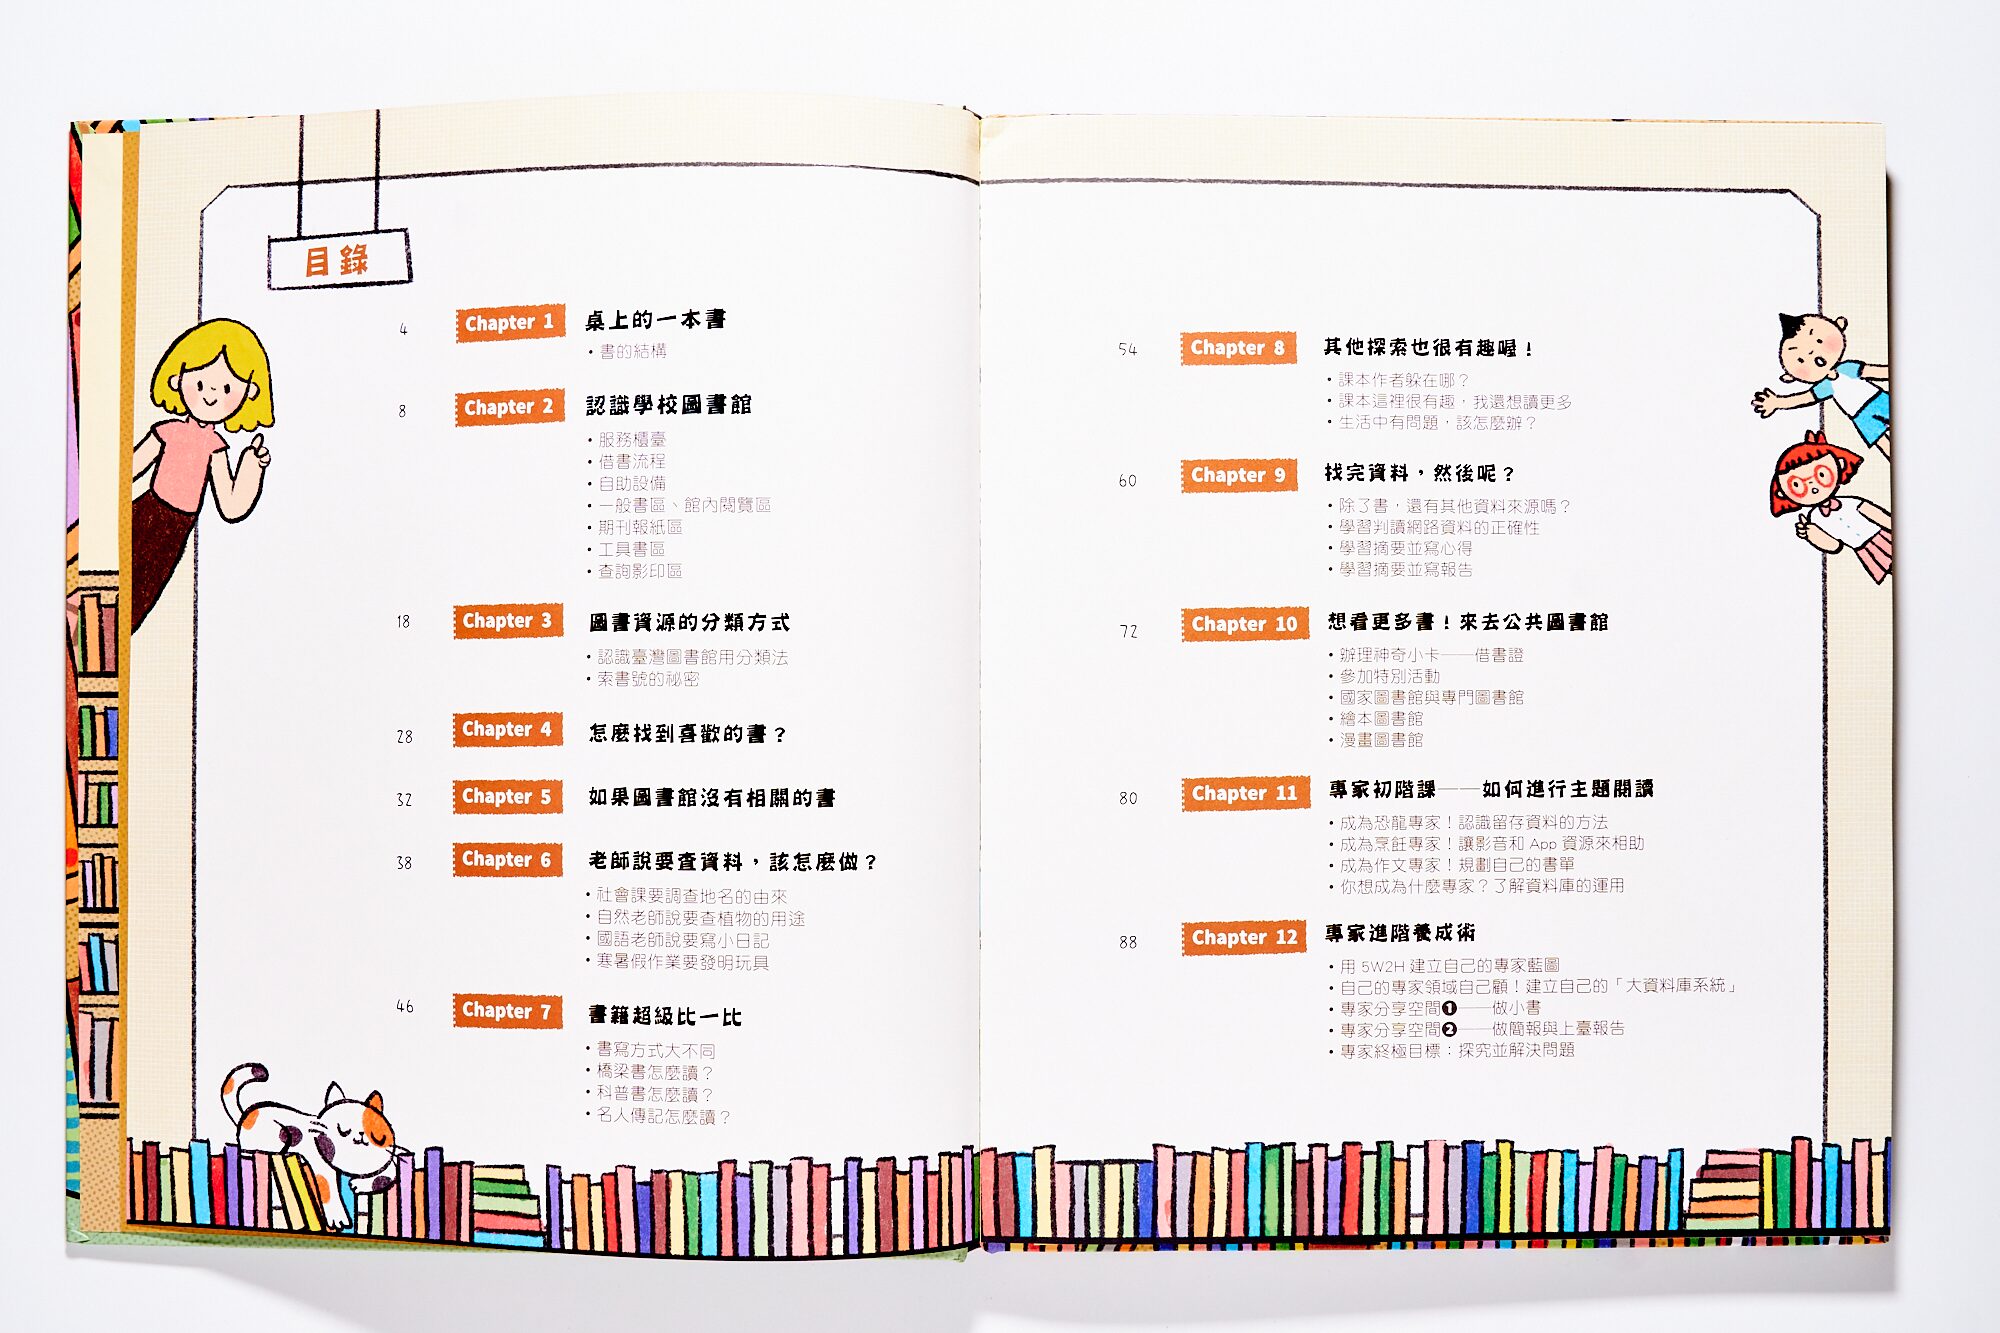 目錄
4 Chapter 1 桌上的一本書
・書的結構
8 Chapter 2 認識學校圖書館
・服務櫃臺
・借書流程
・自助設備
・一般書區、館內閱覽區
・期刊報紙區
・工具書區
・查詢影印區
18 Chapter 3 圖書資源的分類方式
・認識臺灣圖書館用分類法
・索書號的祕密
28 Chapter 4 怎麼找到喜歡的書？
32 Chapter 5 如果圖書館沒有相關的書
38 Chapter 6 老師說要查資料，該怎麼做？
・社會課要調查地名的由來
・自然老師說要查植物的用途
・國語老師說要寫小日記
・寒暑假作業要發明玩具
46 Chapter 7 書籍超級比一比
・書寫方式大不同
・橋梁書怎麼讀？
・科普書怎麼讀？
・名人傳記怎麼讀？
54 Chapter 8 其他探索也很有趣喔！
・課本作者躲在哪？
・課本這裡很有趣，我還想讀更多
・生活中有問題，該怎麼辦？
60 Chapter 9 找完資料，然後呢？
・除了書，還有其他資料來源嗎？
・學習判讀網路資料的正確性
・學習摘要並寫心得
・學習摘要並寫報告
72 Chapter 10 想看更多書！來去公共圖書館
・辦理神奇小卡——借書證
・參加特別活動
・國家圖書館與專門圖書館
・繪本圖書館
・漫畫圖書館
80 Chapter 11 專家初階課——如何進行主題閱讀
・成為恐龍專家！認識留存資料的方法
・成為烹飪專家！讓影音和 App 資源來相助
・成為作文專家！規劃自己的書單
・你想成為什麼專家？了解資料庫的運用
88 Chapter 12 專家進階養成術
・用 5W2H 建立自己的專家藍圖
・自己的專家領域自己顧！建立自己的「大資料庫系統」
・專家分享空間❶——做小書
・專家分享空間❷——做簡報與上臺報告
・專家終極目標：探究並解決問題